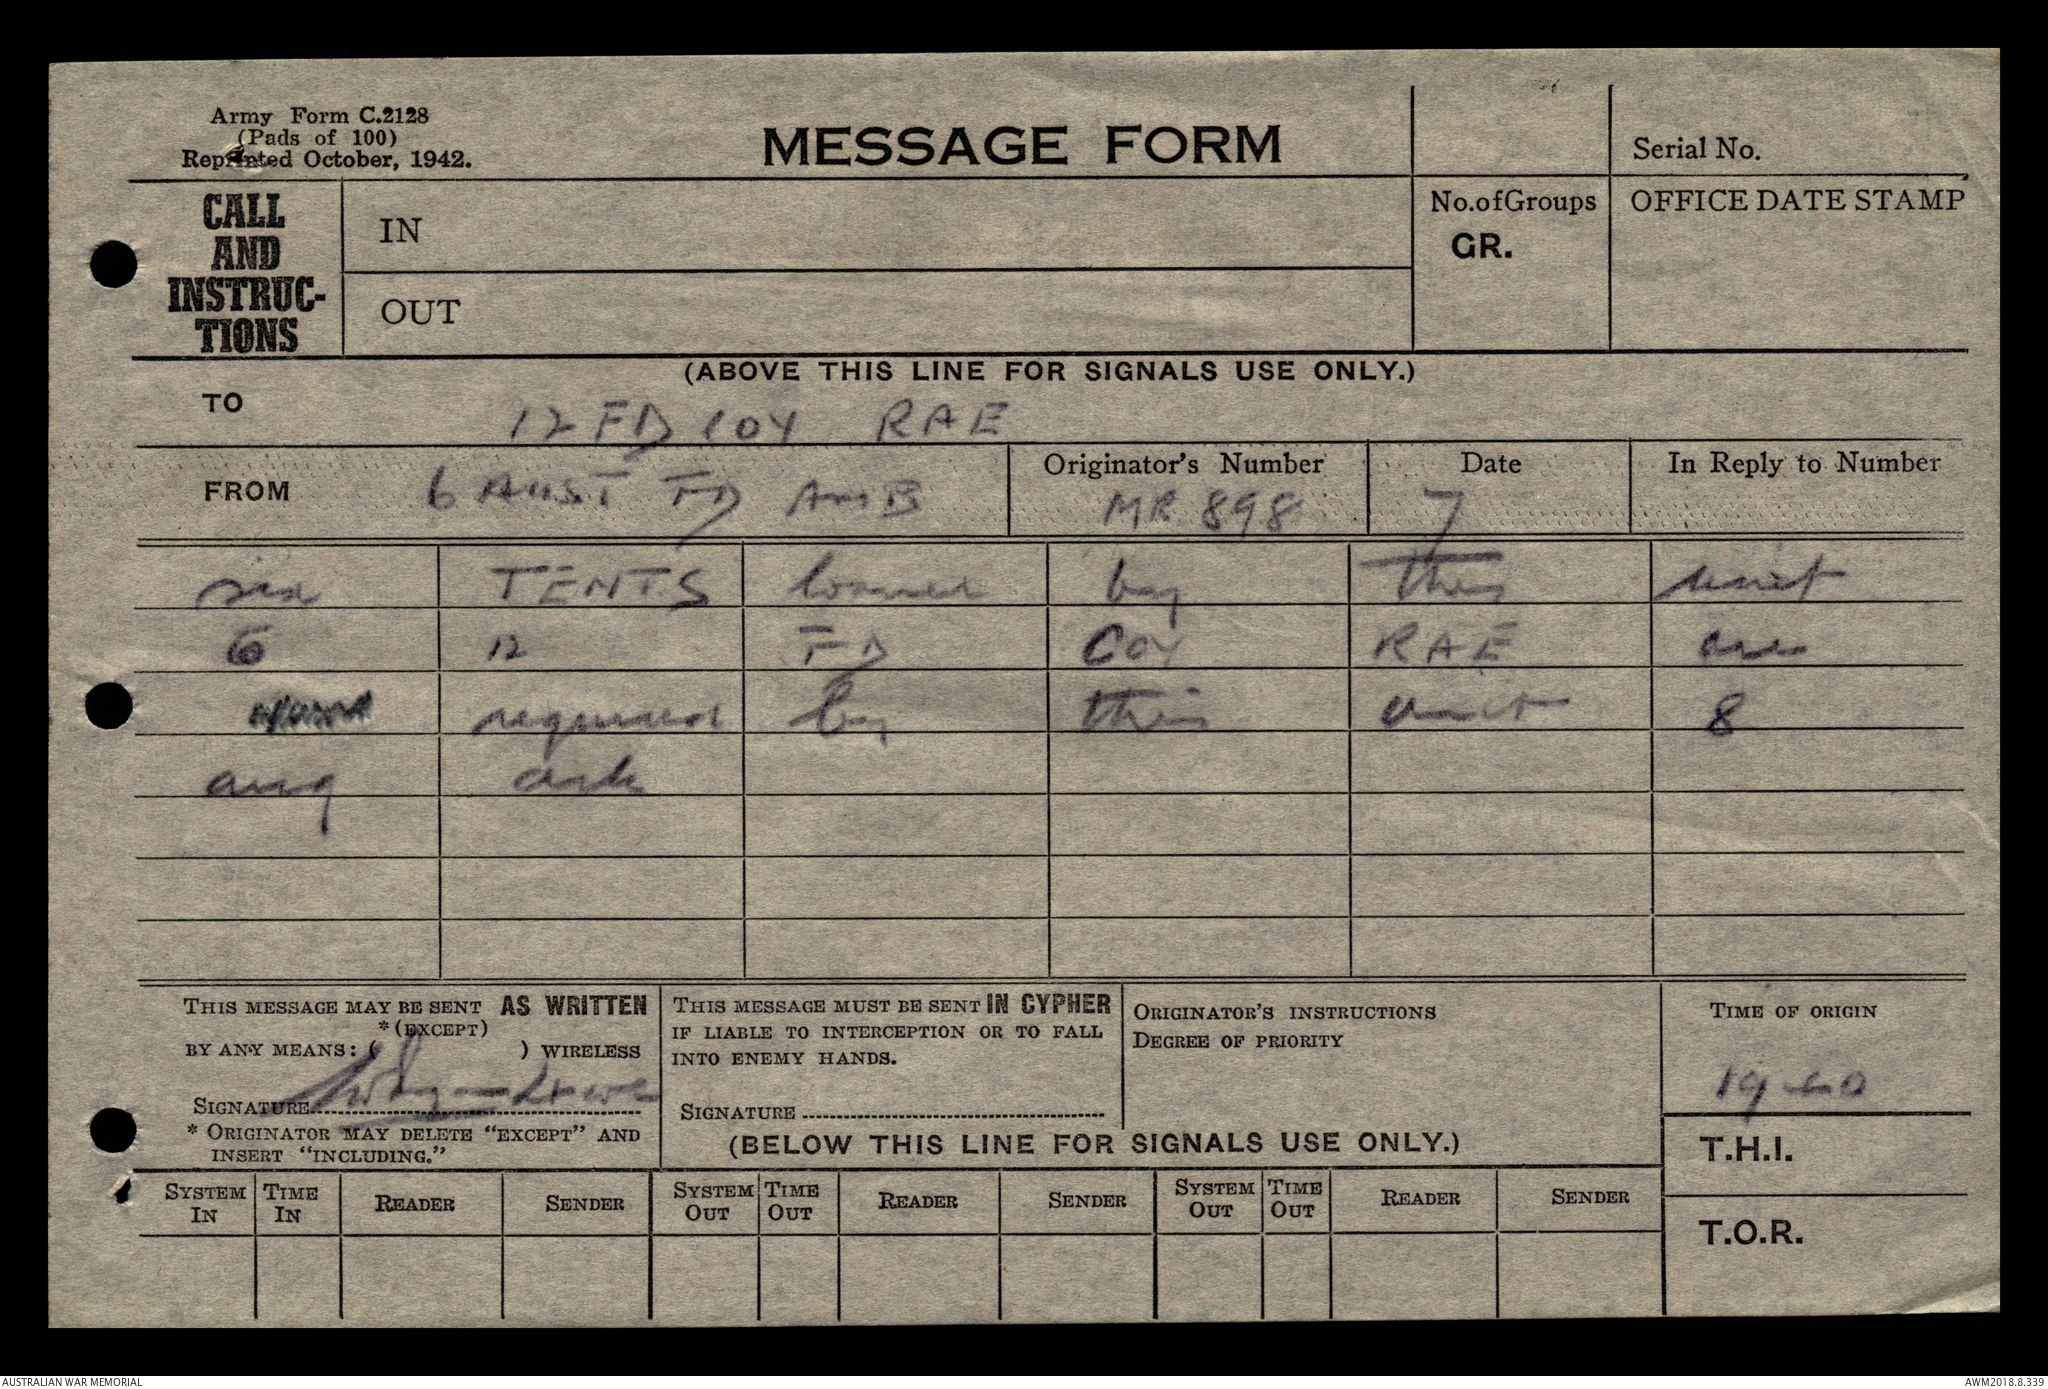 Army Form C.2128
(Pads of 100)
Reprinted October, 1942.
MESSAGE FORM
Serial No.
CALL
AND
INSTRUC-
TIONS
IN
OUT
No. of Groups
GR.
OFFICE DATE STAMP
(ABOVE THIS LINE FOR SIGNALS USE ONLY.)
TO 12 FD COY RAE
FROM 6 AUST FD AMB
Originator's Number
MR 898
Date
7
In Reply to Number
six TENTS loaned by this unit
12 FD COY RAE are
required by this unit 8
aug ack
THIS MESSAGE MAY BE SENT AS WRITTEN
*(EXCEPT)
BY ANY MEANS: ( ) WIRELESS
SIGNATURE
* ORIGINATOR MAY DELETE "EXCEPT" AND
INSERT "INCLUDING."
THIS MESSAGE MUST BE SENT IN CYPHER
IF LIABLE TO INTERCEPTION OR TO FALL
INTO ENEMY HANDS.
SIGNATURE
ORIGINATOR'S INSTRUCTIONS
DEGREE OF PRIORITY
TIME OF ORIGIN
(BELOW THIS LINE FOR SIGNALS USE ONLY.)
T.H.I.
T.O.R.
SYSTEM IN TIME IN READER SENDER SYSTEM OUT TIME OUT READER SENDER SYSTEM OUT TIME OUT READER SENDER
AUSTRALIAN WAR MEMORIAL
AWM2018.8.339